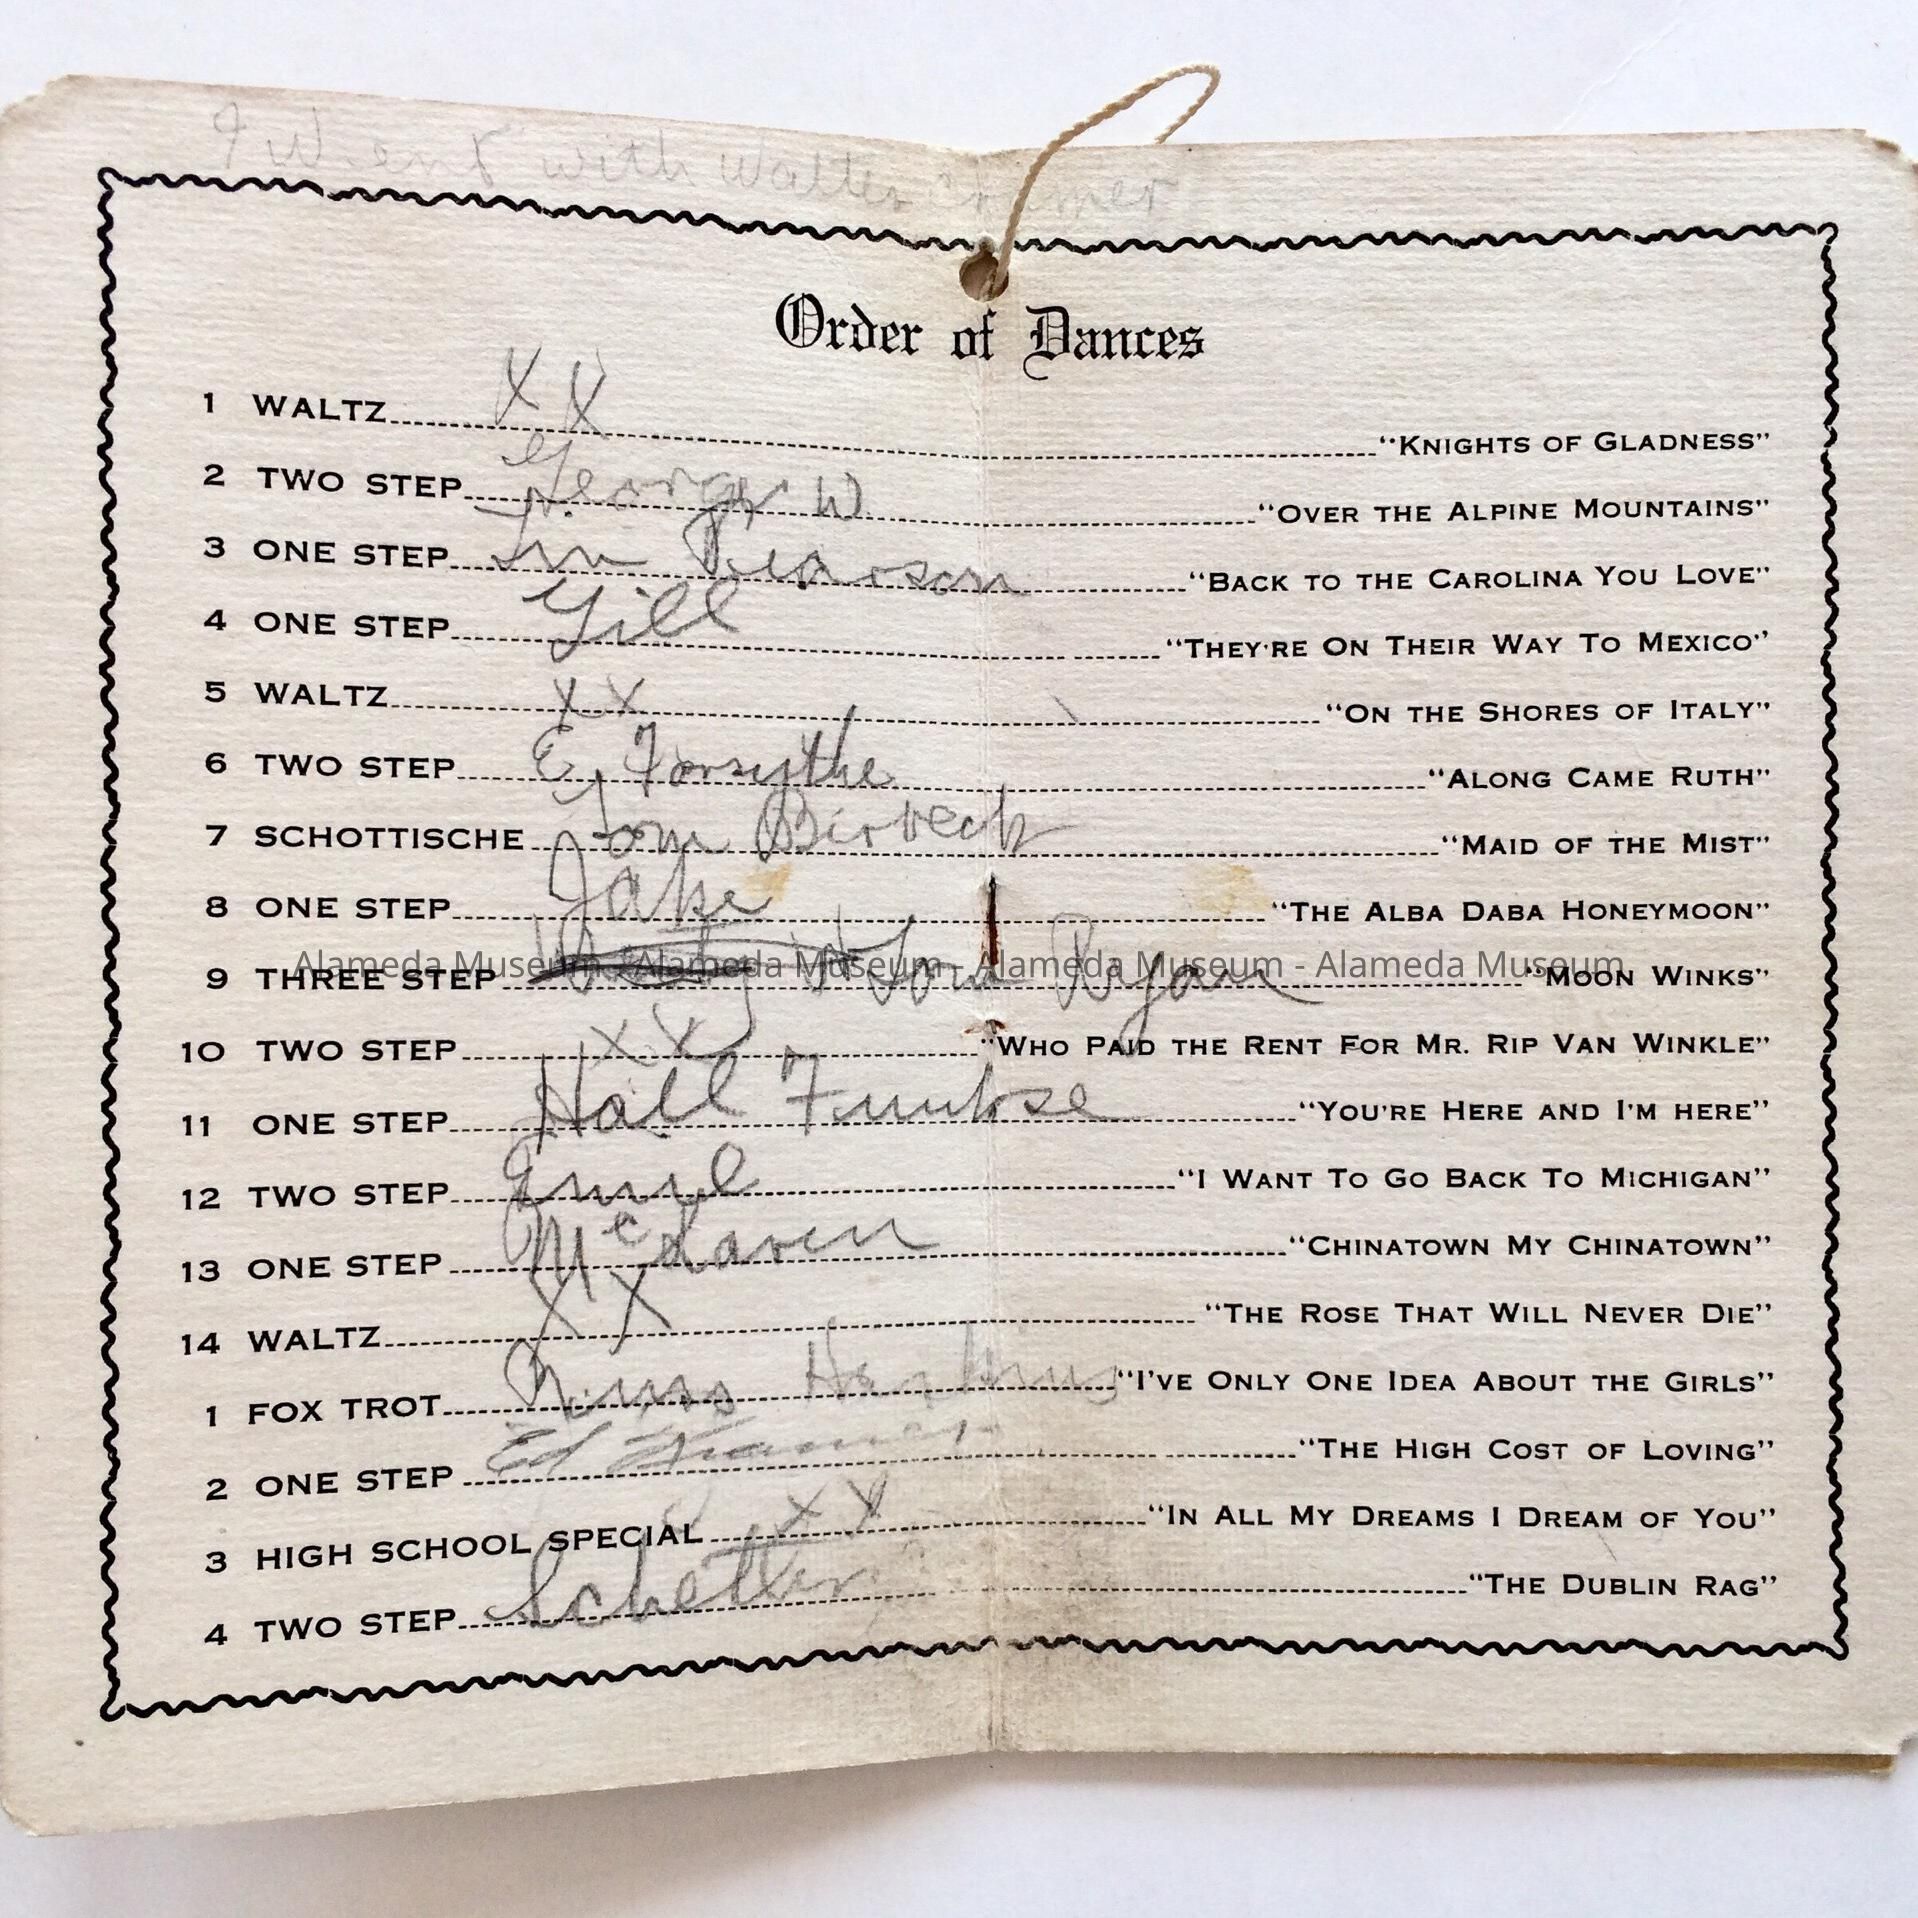 I Went with Walter
Order of Dances
1 WALTZ X X "KNIGHTS OF GLADNESS"
2 TWO STEP George W. "OVER THE ALPINE MOUNTAINS"
3 ONE STEP Pearson "BACK TO THE CAROLINA YOU LOVE"
4 ONE STEP Gill "THEY'RE ON THEIR WAY TO MEXICO"
5 WALTZ X X "ON THE SHORES OF ITALY"
6 TWO STEP E. Forsythe "ALONG CAME RUTH"
7 SCHOTTISCHE Tom "MAID OF THE MIST"
8 ONE STEP Jake "THE ALBA DABA HONEYMOON"
Alameda Museum - Alameda Museum - Alameda Museum - Alameda Museum
9 THREE STEP Tom Ryan "MOON WINKS"
10 TWO STEP X X "WHO PAID THE RENT FOR MR. RIP VAN WINKLE"
11 ONE STEP Hall "YOU'RE HERE AND I'M HERE"
12 TWO STEP Emil "I WANT TO GO BACK TO MICHIGAN"
13 ONE STEP McLaren "CHINATOWN MY CHINATOWN"
14 WALTZ X X "THE ROSE THAT WILL NEVER DIE"
1 FOX TROT "I'VE ONLY ONE IDEA ABOUT THE GIRLS"
2 ONE STEP Ed "THE HIGH COST OF LOVING"
3 HIGH SCHOOL SPECIAL X X "IN ALL MY DREAMS I DREAM OF YOU"
4 TWO STEP "THE DUBLIN RAG"